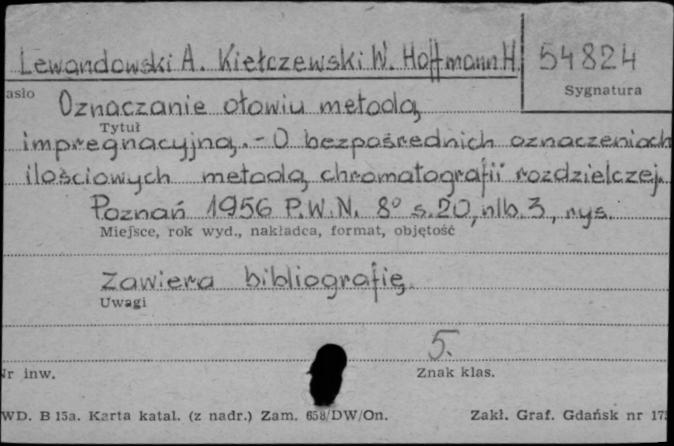 Lewandowski A. Kiełczewski W. Hoffmann H. 54824
asło Sygnatura
Oznaczanie ołowiu metodą
Tytuł
impregnacyjną. - O bezpośrednich oznaczeniach
ilościowych metodą chromatografii rozdzielczej.
Poznań 1956 P.W.N. 8° s. 20, nlb. 3, rys.
Miejsce, rok wyd., nakładca, format, objętość
Zawiera bibliografię.
Uwagi
5.
Nr inw. Znak klas.
WD. B 15a. Karta katal. (z nadr.) Zam. 658/DW/On. Zakł. Graf. Gdańsk nr 175